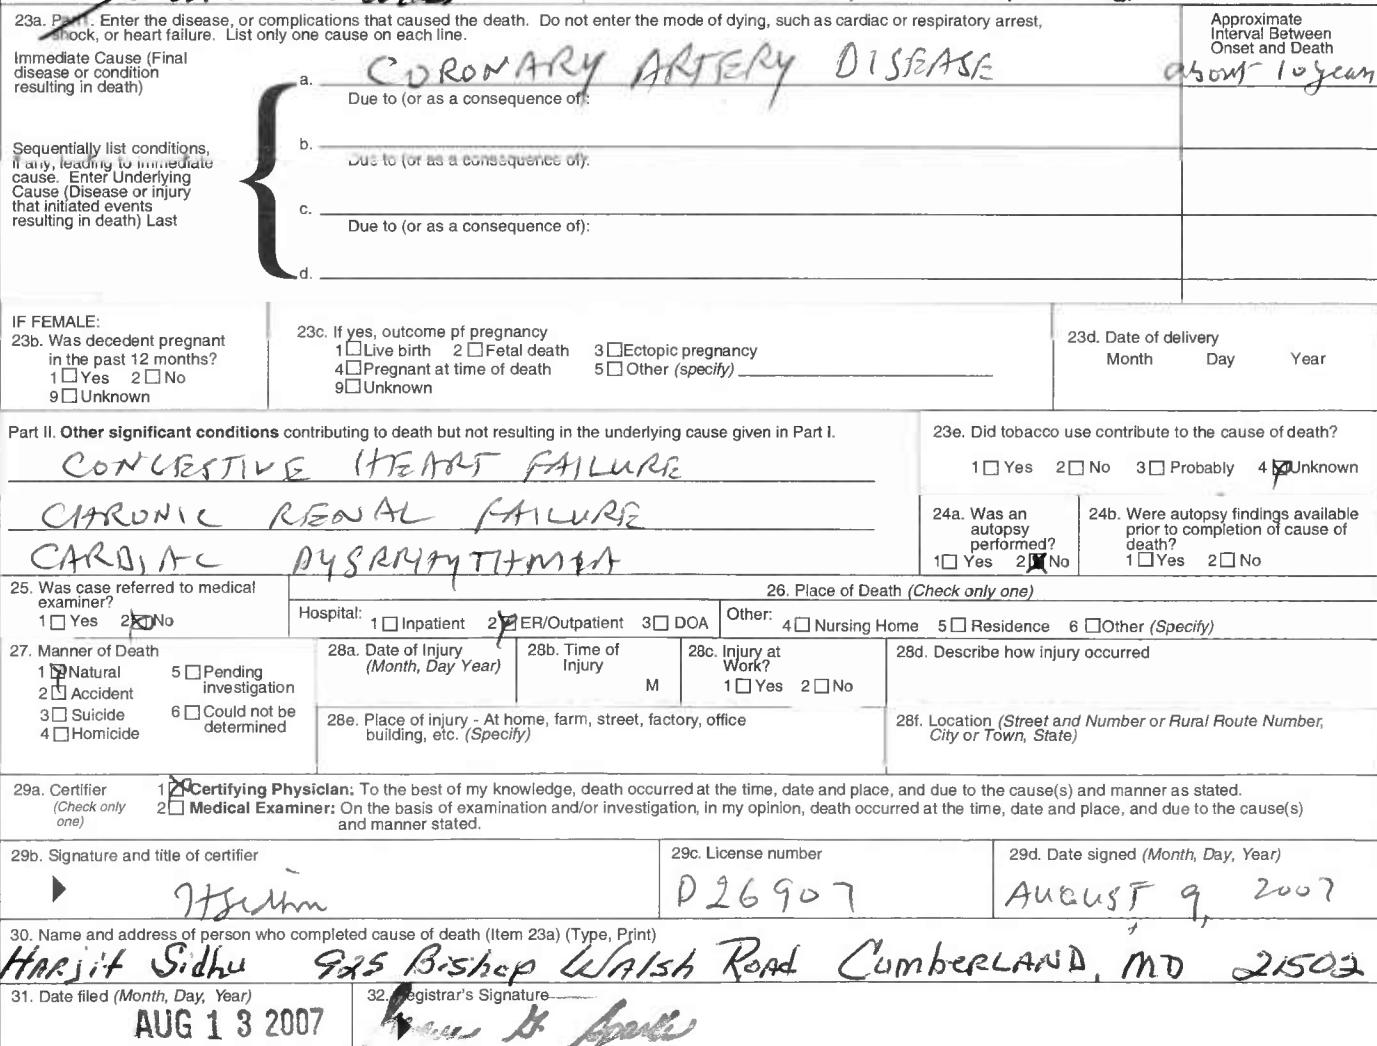 23a. Part I. Enter the disease, or complications that caused the death. Do not enter the mode of dying, such as cardiac or respiratory arrest,
shock, or heart failure. List only one cause on each line.
Approximate
Interval Between
Onset and Death
Immediate Cause (Final
disease or condition
resulting in death)
a. CORONARY ARTERY DISEASE about 10 years
Due to (or as a consequence of):
Sequentially list conditions,
if any, leading to immediate
cause. Enter Underlying
Cause (Disease or injury
that initiated events
resulting in death) Last
b.
Due to (or as a consequence of):
c.
Due to (or as a consequence of):
d.
IF FEMALE:
23b. Was decedent pregnant
in the past 12 months?
1 Yes 2 No
9 Unknown
23c. If yes, outcome pf pregnancy
1 Live birth 2 Fetal death 3 Ectopic pregnancy
4 Pregnant at time of death 5 Other (specify)
9 Unknown
23d. Date of delivery
Month Day Year
Part II. Other significant conditions contributing to death but not resulting in the underlying cause given in Part I.
CONGESTIVE HEART FAILURE
CHRONIC RENAL FAILURE
CARDIAC DYSRHYTHMIA
23e. Did tobacco use contribute to the cause of death?
1 Yes 2 No 3 Probably 4 Unknown
24a. Was an
autopsy
performed?
1 Yes 2 No
24b. Were autopsy findings available
prior to completion of cause of
death?
1 Yes 2 No
25. Was case referred to medical
examiner?
1 Yes 2 No
26. Place of Death (Check only one)
Hospital: 1 Inpatient 2 ER/Outpatient 3 DOA Other: 4 Nursing Home 5 Residence 6 Other (Specify)
27. Manner of Death
1 Natural 5 Pending
investigation
2 Accident
3 Suicide 6 Could not be
determined
4 Homicide
28a. Date of Injury
(Month, Day Year)
28b. Time of
Injury
M
28c. Injury at
Work?
1 Yes 2 No
28d. Describe how injury occurred
28e. Place of injury - At home, farm, street, factory, office
building, etc. (Specify)
28f. Location (Street and Number or Rural Route Number,
City or Town, State)
29a. Certifier
(Check only
one)
1 Certifying Physician: To the best of my knowledge, death occurred at the time, date and place, and due to the cause(s) and manner as stated.
2 Medical Examiner: On the basis of examination and/or investigation, in my opinion, death occurred at the time, date and place, and due to the cause(s)
and manner stated.
29b. Signature and title of certifier
29c. License number
D26907
29d. Date signed (Month, Day, Year)
AUGUST 9, 2007
30. Name and address of person who completed cause of death (Item 23a) (Type, Print)
HARjit Sidhu 925 Bishop WAlsh ROAD CumbeRLAND, MD 21502
31. Date filed (Month, Day, Year)
AUG 13 2007
32. Registrar's Signature